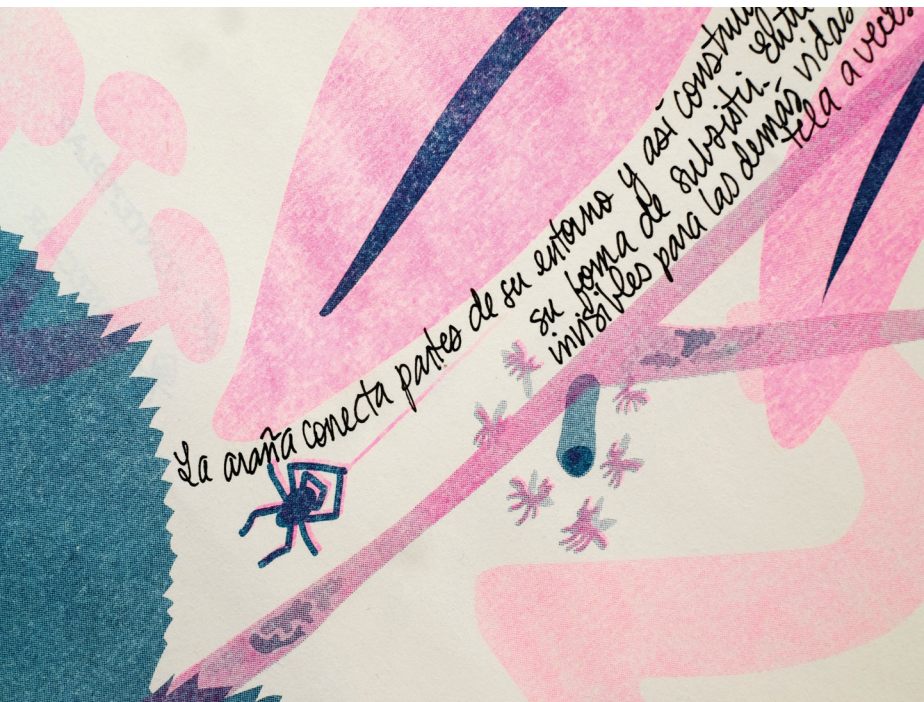 La araña conecta partes de su entorno y así
su forma de subsistir. Entre
invisibles para las demás vidas
tela a veces